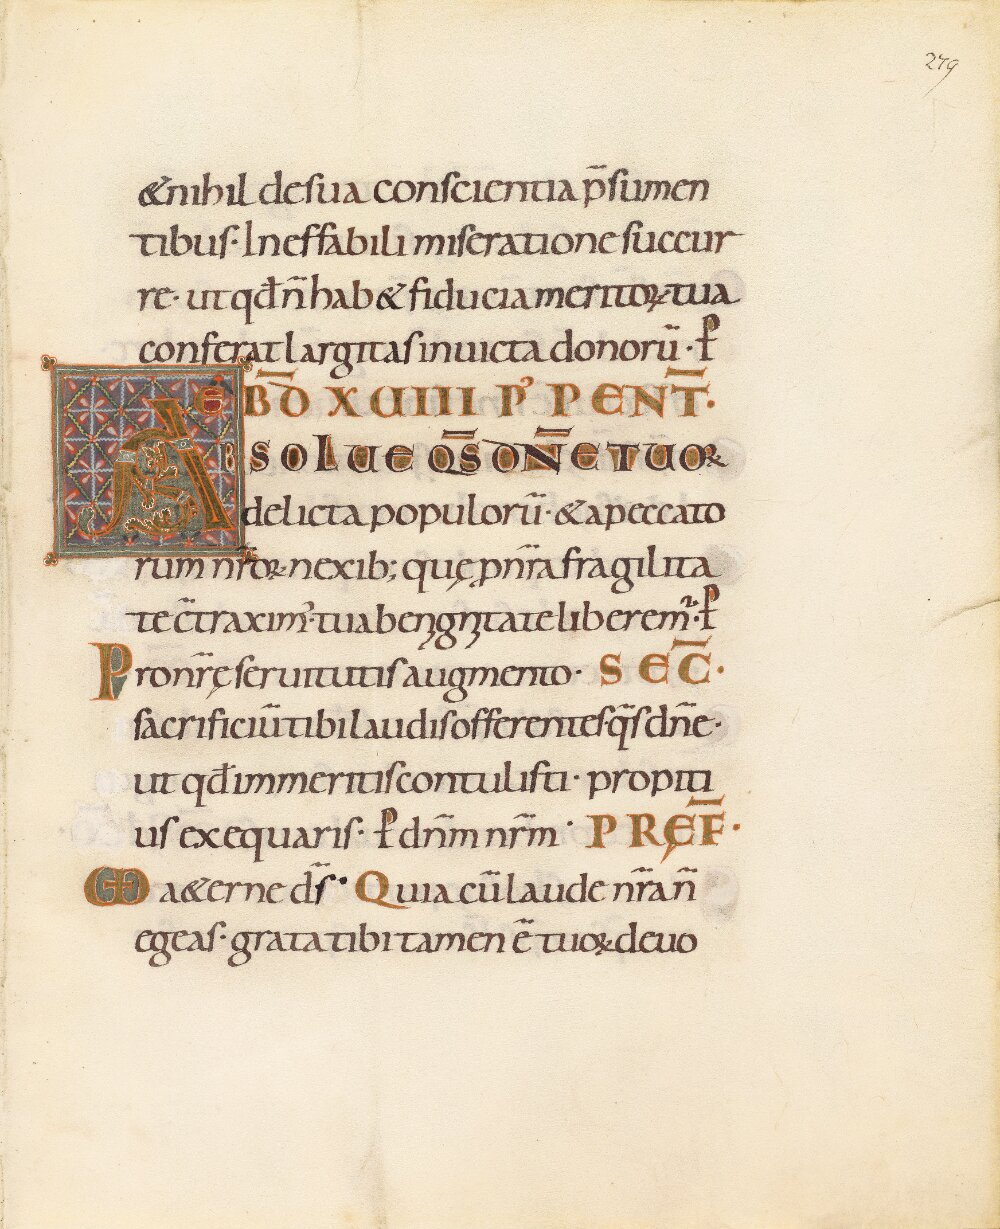 279
&nihil desua conscientia p̄sumen
tibus· Ineffabili miseratione succur
re· ut qđ n̄ hab& fiducia meritoꝝ tua
conferat largitas inuicta donorū· ꝑ
EBD̄ XUIIII P' PENT̄·
A
BSOLUE QS̄ DN̄E TUOꝝ
delicta populorū· & apeccato
rum nr̄oꝝ nexib; quę ꝑ nr̄a fragilita
te c̄traxim'· tua benignitate liberem'· ꝑ
Pro nr̄ę seruitutis augmento· SEC̄·
sacrificiū tibi laudis offerentes· qs̄ dn̄e·
ut qđ immeritis contulisti· propiti
us exequaris· ꝑ dn̄m nr̄m· PRĘF̄·
UD a&erne ds̄· Quia cū laude nr̄a n̄
egeas· grata tibi tamen ē tuoꝝ deuo